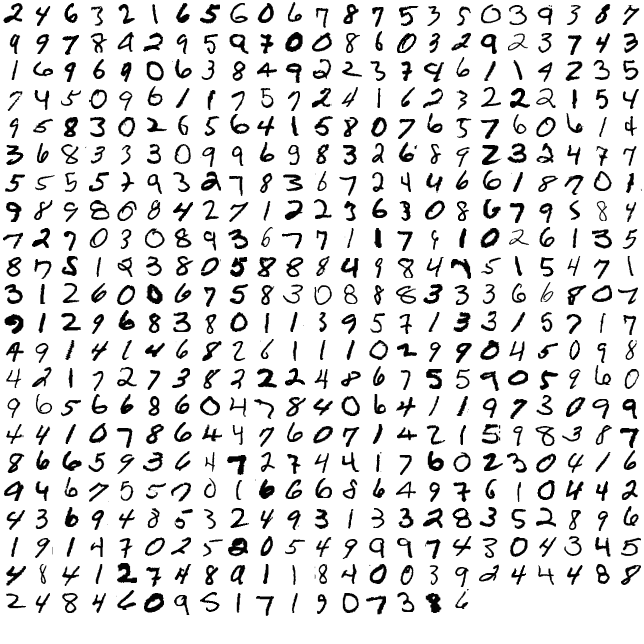 2 4 6 3 2 1 6 5 6 0 6 7 8 7 5 3 5 0 3 9 3 8 7
9 9 7 8 4 2 9 5 9 7 0 0 8 6 0 3 2 9 2 3 7 4 3
1 6 9 6 9 0 6 3 8 4 9 2 2 3 7 9 6 1 1 9 2 3 5
7 4 5 0 9 6 1 1 7 5 7 2 4 1 6 2 3 2 2 2 1 5 4
9 5 8 3 0 2 6 5 6 4 1 5 8 0 7 6 5 7 6 0 6 1 4
3 6 8 3 3 3 0 9 9 6 9 8 3 2 6 8 9 2 3 2 4 7 7
5 5 5 5 7 9 3 2 7 8 3 6 7 2 4 4 6 6 1 8 7 0 1
9 8 9 8 0 8 4 2 7 1 2 2 3 6 3 0 8 6 7 9 5 8 4
7 2 7 0 3 0 8 9 3 6 7 7 1 1 7 9 1 0 2 6 1 3 5
8 7 5 1 8 3 8 0 5 8 8 8 4 9 8 4 7 5 1 5 4 7 1
3 1 2 6 0 0 6 7 5 8 3 0 8 8 8 3 3 3 6 6 8 0 7
9 1 2 9 6 8 3 8 0 1 1 3 9 5 7 1 3 3 1 5 7 1 7
4 9 1 4 1 4 6 8 2 6 1 1 1 0 2 9 9 0 4 5 0 9 8
4 2 1 7 2 7 3 8 2 2 2 4 8 6 7 5 5 9 0 5 9 6 0
9 6 5 6 6 8 6 0 4 7 8 4 0 6 4 1 1 9 7 3 0 9 9
4 4 1 0 7 8 6 4 4 7 6 0 7 1 4 2 1 5 9 8 3 8 7
8 6 6 5 9 3 6 4 7 2 7 4 4 1 7 6 0 2 3 0 4 1 6
9 4 6 7 5 5 7 0 1 6 6 6 8 6 4 9 7 6 1 0 4 4 2
4 3 6 9 4 8 5 3 2 4 9 3 1 3 3 2 8 3 5 2 8 9 6
1 9 1 4 7 0 2 5 2 0 5 4 9 9 9 9 7 4 3 0 4 3 4 5
4 8 4 1 2 7 4 8 9 1 1 8 4 0 0 3 9 2 4 4 4 8 8
2 4 8 4 6 0 9 5 1 7 1 9 0 7 3 8 6